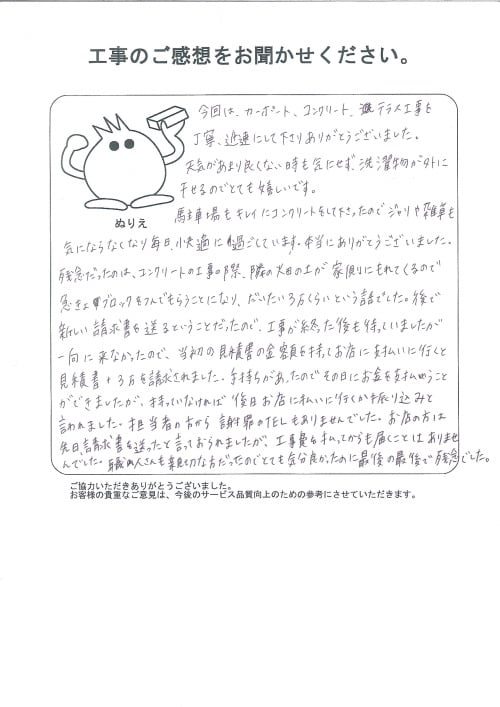 工事のご感想をお聞かせください。
今回は、カーポート、コンクリート、テラス工事を
丁寧、迅速にして下さりありがとうございました。
天気があまり良くない時も気にせず、洗濯物が外に
干せるのでとても嬉しいです。
ぬりえ
駐車場もキレイにコンクリートをして下さったのでジャリや雑草も
気にならなくなり毎日、快適に過ごしています。本当にありがとうございました。
残念だったのは、コンクリートの工事の際、隣の畑の土が家側にもれてくるので
急きょブロックをつんでもらうことになり、だいたい3万くらいという話でした。後で
新しい請求書を送るということだったので、工事が終った後も待っていましたが
一向に来なかったので、当初の見積書の金額を持ってお店に支払いに行くと
見積書+3万を請求されました。手持ちがあったのでその日にお金を支払うこと
ができましたが、持っていなければ後日お店に払いに行くか振り込みと
言われました。担当者の方から謝罪のTELもありませんでした。お店の方は
先日、請求書を送ったと言っておられましたが、工事費を払ってからも届くことはありませ
んでした。職人さんも親切な方だったのでとても気分良かったのに最後の最後で残念でした。
ご協力いただきありがとうございました。
お客様の貴重なご意見は、今後のサービス品質向上のための参考にさせていただきます。